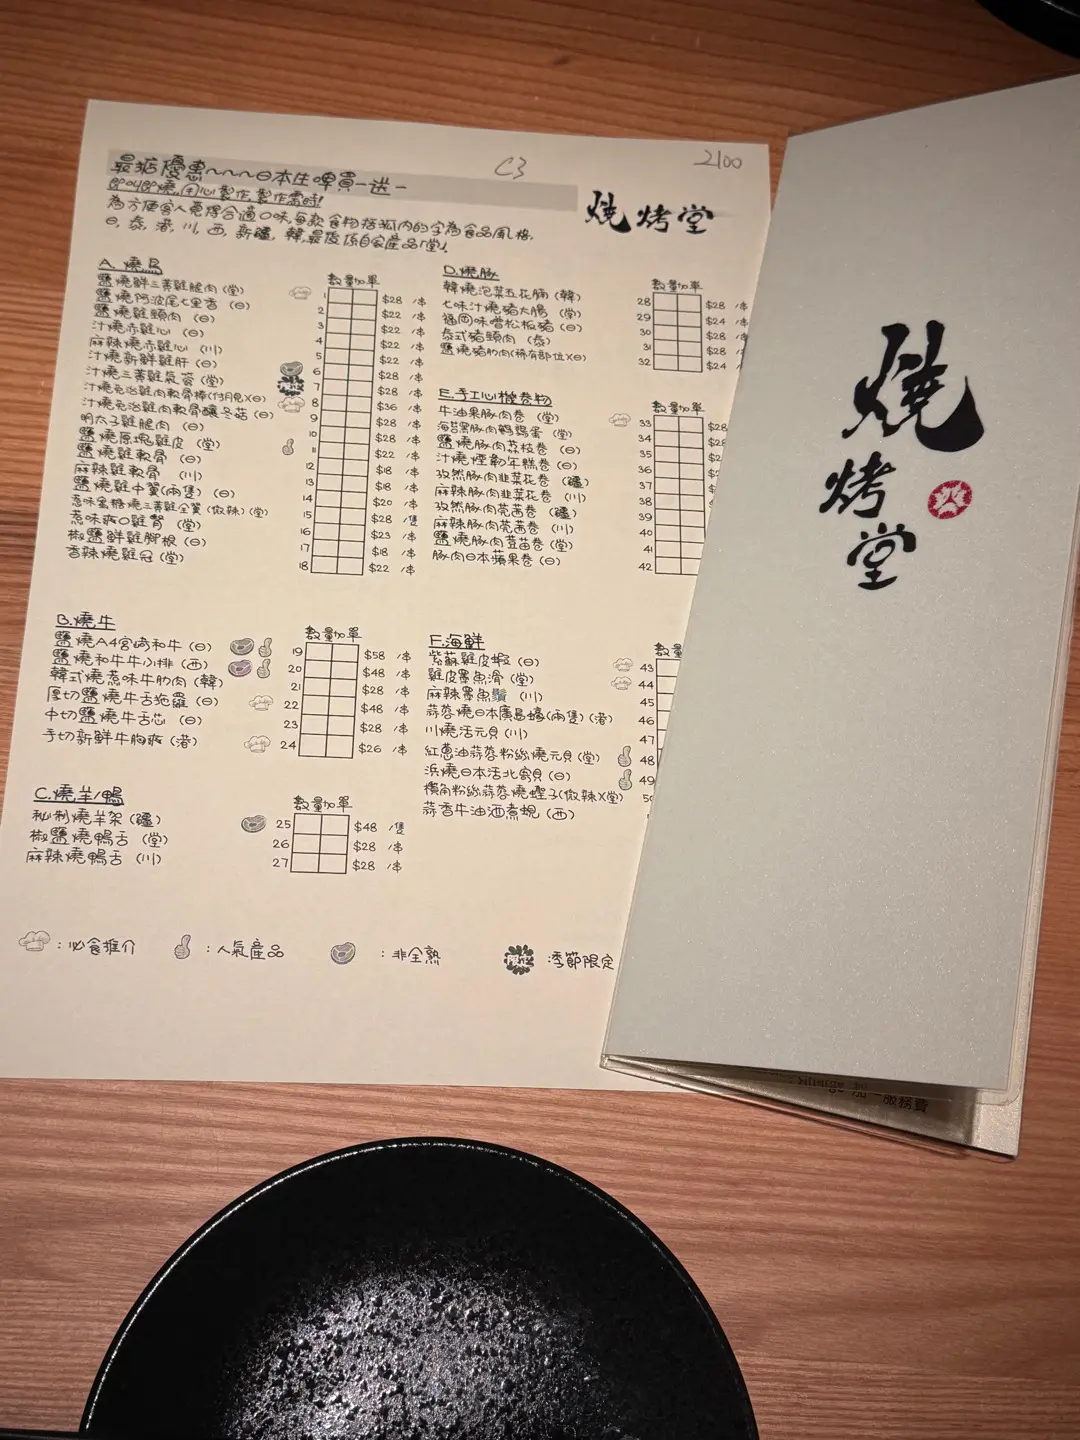 C3
2100
最掂優惠~~~日本生啤買一送一
燒烤堂
為方便客人覓得合適口味,每款食物括弧內的字為食品風格,
日,泰,港,川,西,新疆,韓,最後係自家產品「堂」.
A. 燒鳥
數量加單
鹽燒鮮三黃雞腿肉(堂) 1 $28 /串
鹽燒阿波尾七里香(日) 2 $22 /串
鹽燒雞頸肉(日) 3 $22 /串
汁燒赤雞心(日) 4 $22 /串
麻辣燒赤雞心(川) 5 $22 /串
汁燒新鮮雞肝(日) 6 $28 /串
汁燒三黃雞氣管(堂) 限定 7 $28 /串
汁燒免治雞肉軟骨棒(付月見)(日) 8 $36 /串
汁燒免治雞肉軟骨釀冬菇(日) 9 $28 /串
明太子雞腿肉(日) 10 $28 /串
鹽燒原塊雞皮(堂) 11 $22 /串
鹽燒雞軟骨(日) 12 $18 /串
麻辣雞軟骨(川) 13 $18 /串
鹽燒雞中翼(兩隻)(日) 14 $20 /串
惹味蜜糖燒三黃雞全翼(微辣)(堂) 15 $28 /隻
惹味爽口雞腎(堂) 16 $23 /串
椒鹽鮮雞腳根(日) 17 $18 /串
香辣燒雞冠(堂) 18 $22 /串
B. 燒牛
數量加單
鹽燒A4宮崎和牛(日) 19 $58 /串
鹽燒和牛牛小排(西) 20 $48 /串
韓式燒惹味牛肋肉(韓) 21 $28 /串
厚切鹽燒牛舌拖羅(日) 22 $48 /串
中切鹽燒牛舌芯(日) 23 $28 /串
手切新鮮牛胸爽(港) 24 $26 /串
C.燒羊/鴨
數量加單
秘制燒羊架(疆) 25 $48 /隻
椒鹽燒鴨舌(堂) 26 $28 /串
麻辣燒鴨舌(川) 27 $28 /串
D.燒豚
數量加單
韓燒泡菜五花腩(韓) 28 $28 /串
七味汁燒豬大腸(堂) 29 $24 /串
福岡味噌松板豬(日) 30 $28 /串
泰式豬頸肉(泰) 31 $28 /串
鹽燒豬肋肉(稀有部位)(日) 32 $24 /串
E.手工心機卷物
數量加單
牛油果豚肉卷(堂) 33 $28
海苔黑豚肉鵪鶉蛋(堂) 34 $28
鹽燒豚肉荔枝卷(日) 35
汁燒煙韌年糕卷(日) 36
孜然豚肉韭菜花卷(疆) 37
麻辣豚肉韭菜花卷(川) 38
孜然豚肉芫茜卷(疆) 39
麻辣豚肉芫茜卷(川) 40
鹽燒豚肉荳苗卷(堂) 41
豚肉日本蘋果卷(日) 42
F.海鮮
數量
紫蘇雞皮蝦(日) 43
雞皮墨魚滑(堂) 44
麻辣墨魚鬚(川) 45
蒜蓉燒日本廣島蠔(兩隻)(港) 46
川燒活元貝(川) 47
紅蔥油蒜蓉粉絲燒元貝(堂) 48
浜燒日本活北寄貝(日) 49
欖角粉絲蒜蓉燒蟶子(微辣)(堂) 50
蒜香牛油酒煮蜆(西)
:必食推介
:人氣產品
:非全熟
限定 :季節限定
燒
烤
堂
火
加一服務費